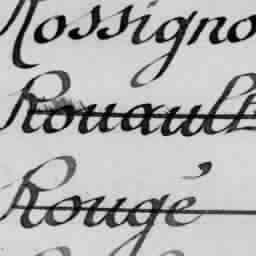 Rossigno
Rouault
Rougé